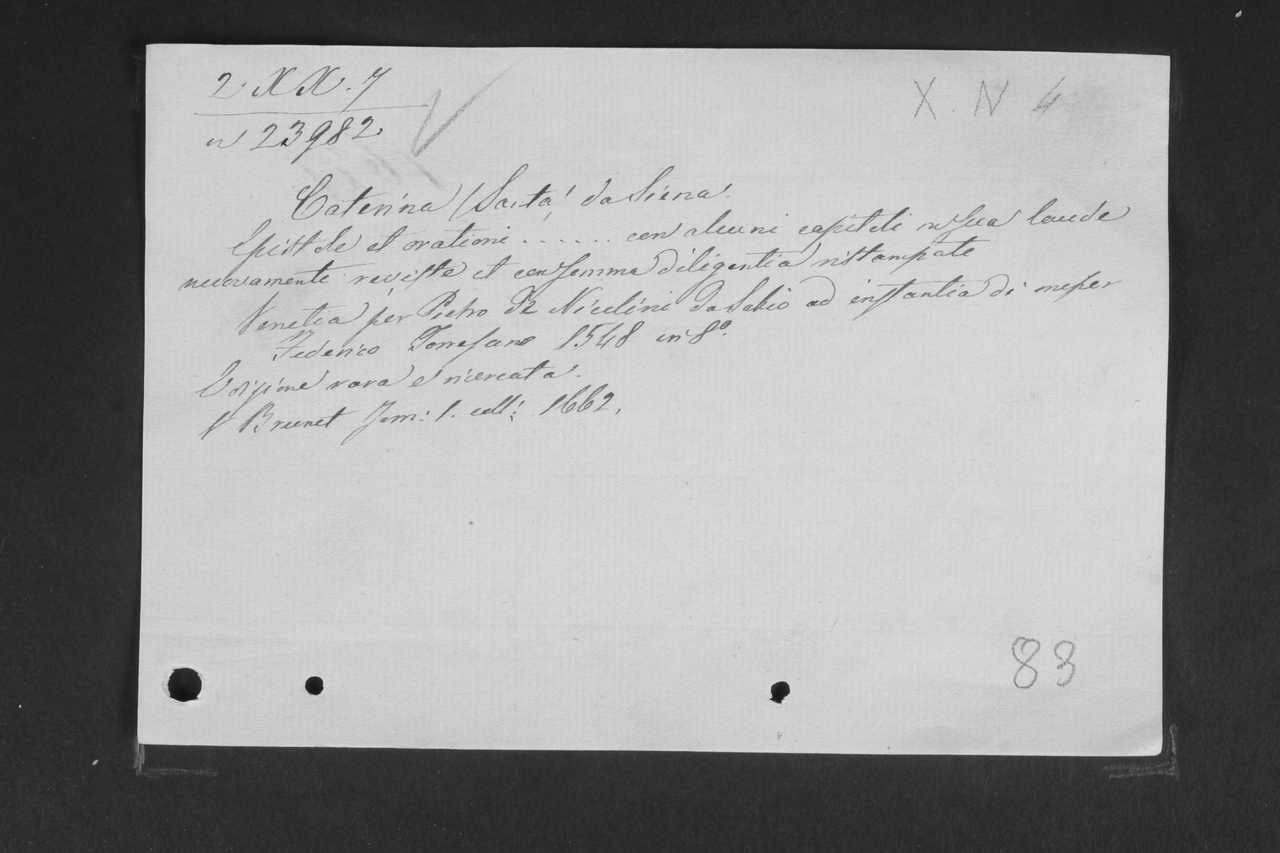 2 X X. 7
X. N 4
n 23982
Caterina (Santa) da Siena.
Epistole et orationi ...... con alcuni capitoli in sua laude
nuovamente reviste et con somma diligentia ristampate
Venetia per Pietro de Nicolini da Sabio ad instantia di messer
Federico Torresano 1548 in 8º.
Edizione rara e ricercata.
V Brunet Tom: 1. coll: 1662.
83